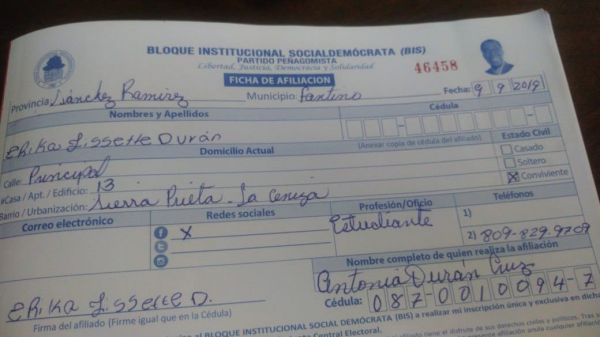 BLOQUE INSTITUCIONAL SOCIALDEMÓCRATA (BIS)
PARTIDO PEÑAGOMISTA
Libertad, Justicia, Democracia y Solidaridad
FICHA DE AFILIACION
46458
Provincia Sánchez Ramírez Municipio: Fantino Fecha: 9 9 2019
Nombres y Apellidos Cédula
Erika Lissette Durán
(Anexar copia de cédula del afiliado)
Domicilio Actual Estado Civil
Calle: Principal Casado
#Casa / Apt. / Edificio: 13 Soltero
Barrio / Urbanización: Sierra Prieta - La Ceniza X Conviviente
Correo electrónico Redes sociales Profesión/Oficio Teléfonos
X Estudiante 1)
2) 809-829-9709
Nombre completo de quien realiza la afiliación
Antonia Duran Cruz
Erika Lissette D. Cédula: 087-0010094-7
Firma del afiliado (Firme igual que en la Cédula)
BLOQUE INSTITUCIONAL SOCIAL DEMÓCRATA (BIS) a realizar mi inscripción única y exclusiva en dicha
Central Electoral.